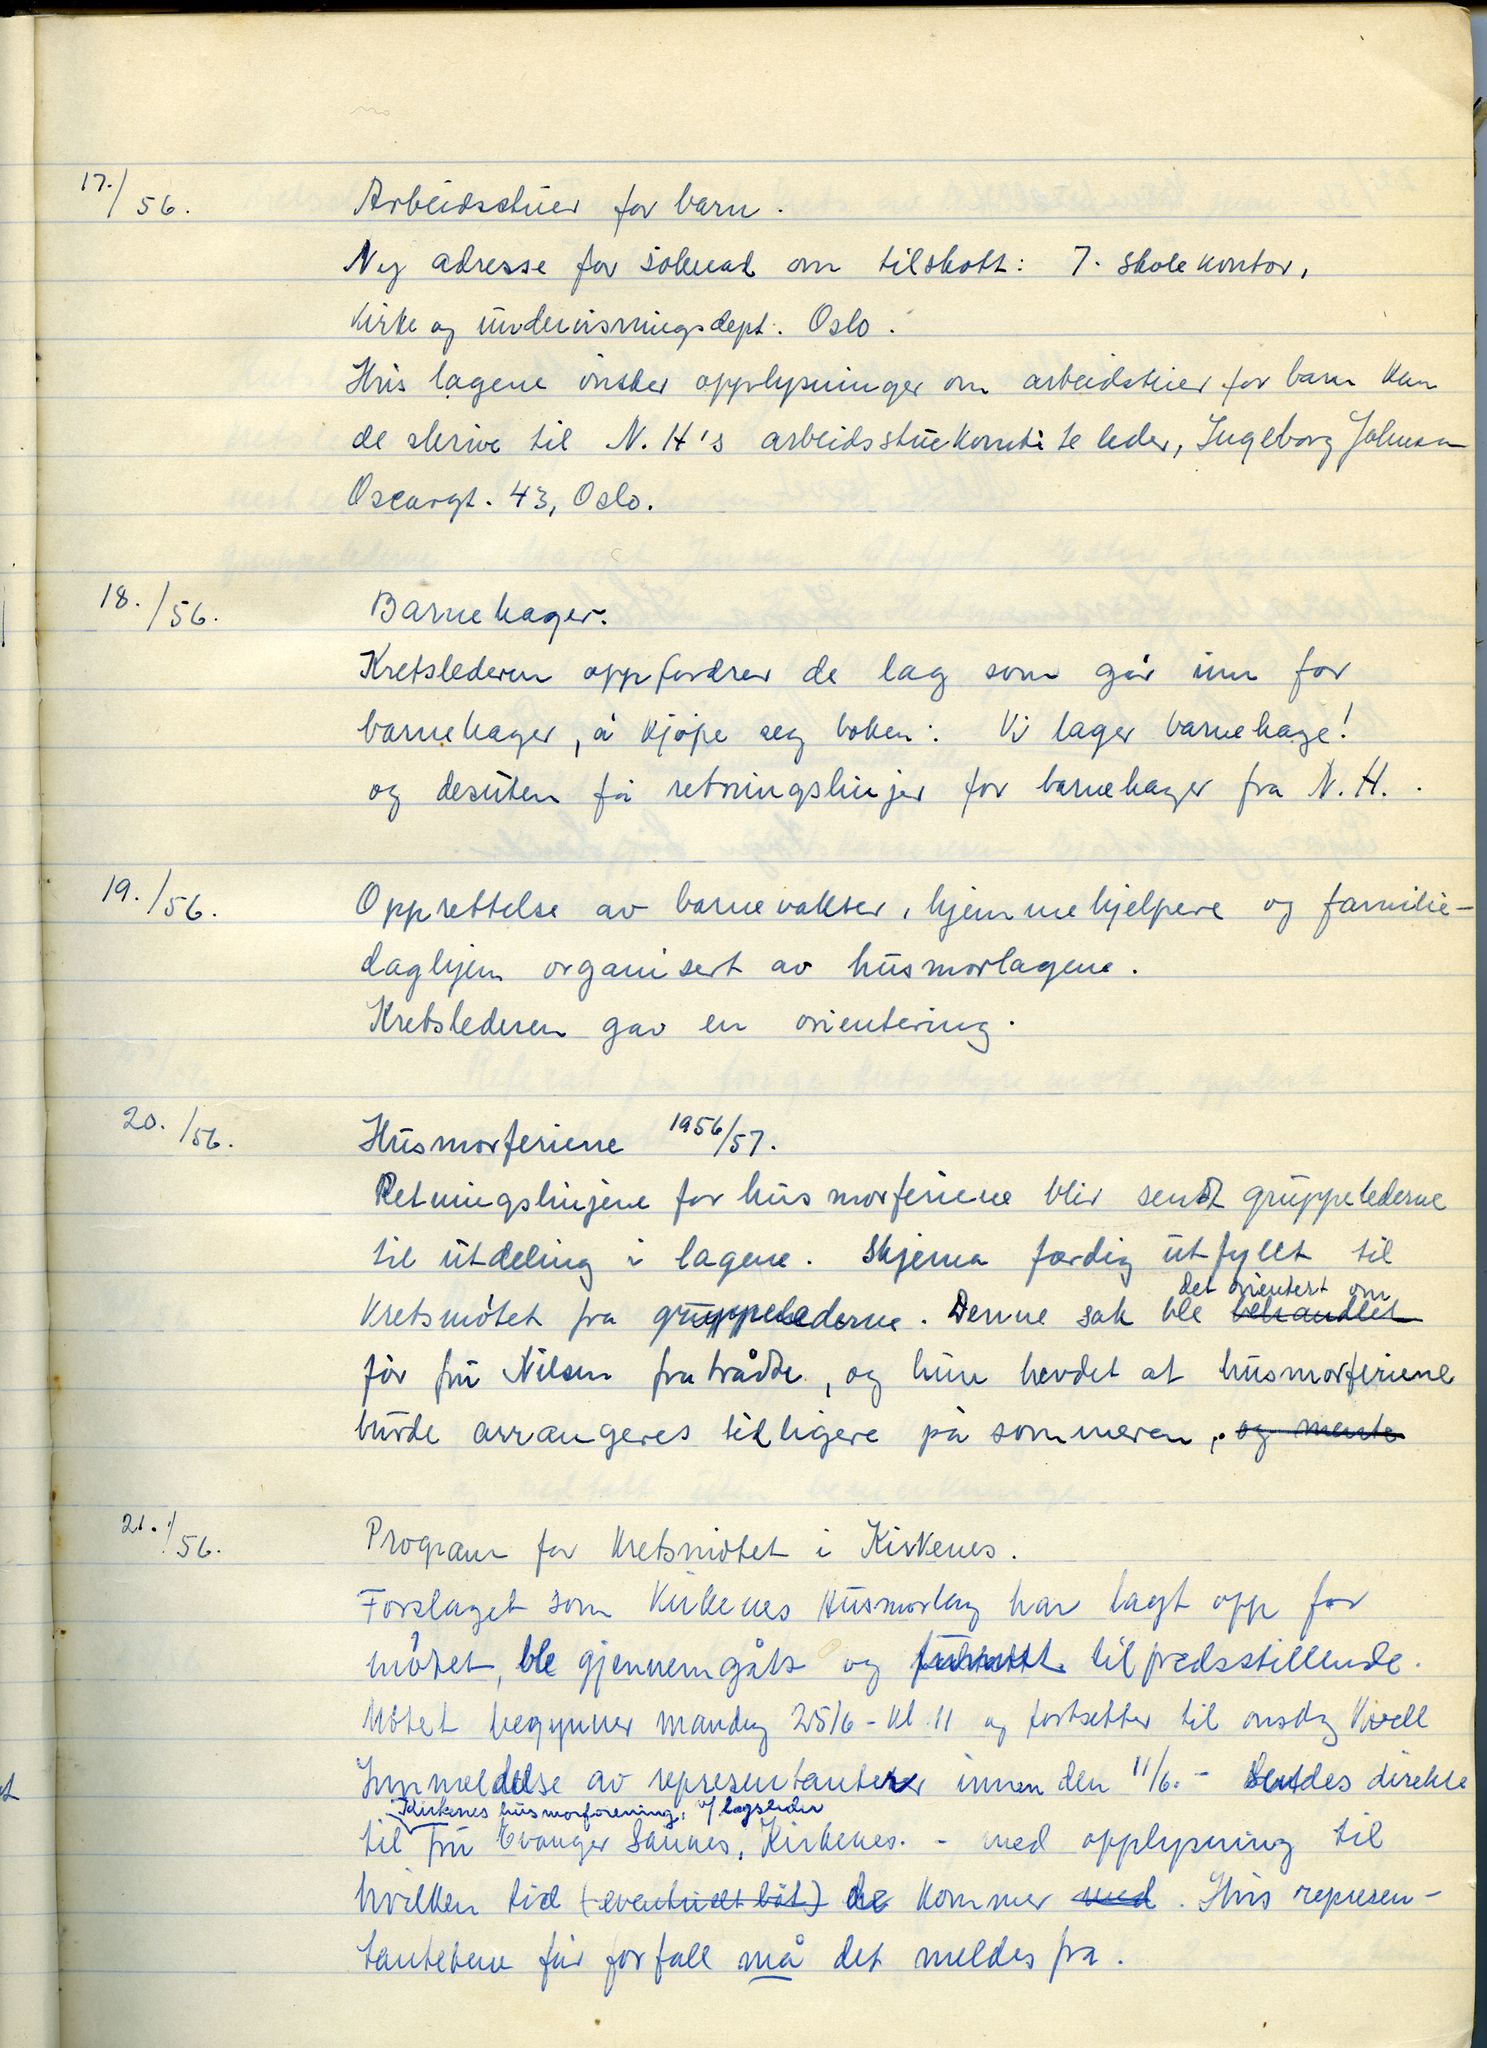 17./56. Arbeidsstuer for barn.
Ny adresse for søknad om tilskott: 7. skolekontor,
Kirke og undervisningsdept. Oslo.
Hvis lagene ønsker opplysninger om arbeidstuer for barn kan
de skrive til N.H's arbeidsstuekomité leder, Ingeborg Johnsen
Oscarsgt. 43, Oslo.
18./56. Barnehager.
Kretslederen oppfordrer de lag som går inn for
barnehager, å kjøpe seg boken: Vi lager barnehage!
og desuten få retningslinjer for barnehager fra N.H.
19./56. Opprettelse av barnevakter, hjemmehjelpere og familie-
daghjem organisert av husmorlagene.
Kretslederen gav en orientering.
20./56. Husmorferiene 1956/57.
Retningslinjene for husmorferiene blir sendt gruppelederne
til utdeling i lagene. Skjema færdig utfyllt til
det orientert om
Kretsmøtet fra gruppelederne. Denne sak ble behandlet
før fru Nilsen fratrådte, og hun hevdet at husmorferiene
burde arrangeres tidligere på sommeren, og mente
21./56. Program for Kretsmøtet i Kirkenes.
Forslaget som Kirkenes Husmorlag har lagt opp for
møtet, ble gjennemgått og tilfredsstillende.
Møtet begynner mandag 25/6 - kl 11 og fortsetter til onsdag Kvell
Innmeldelse av representanter innen den 11/6. - Sendes direkte
Kirkenes husmorforening, v/ lagsleder
til fru Evanger Sannes, Kirkenes. - med opplysning til
hvilken tid (eventuelt båt) de kommer med. Hvis represen-
tantene får forfall må det meldes fra.